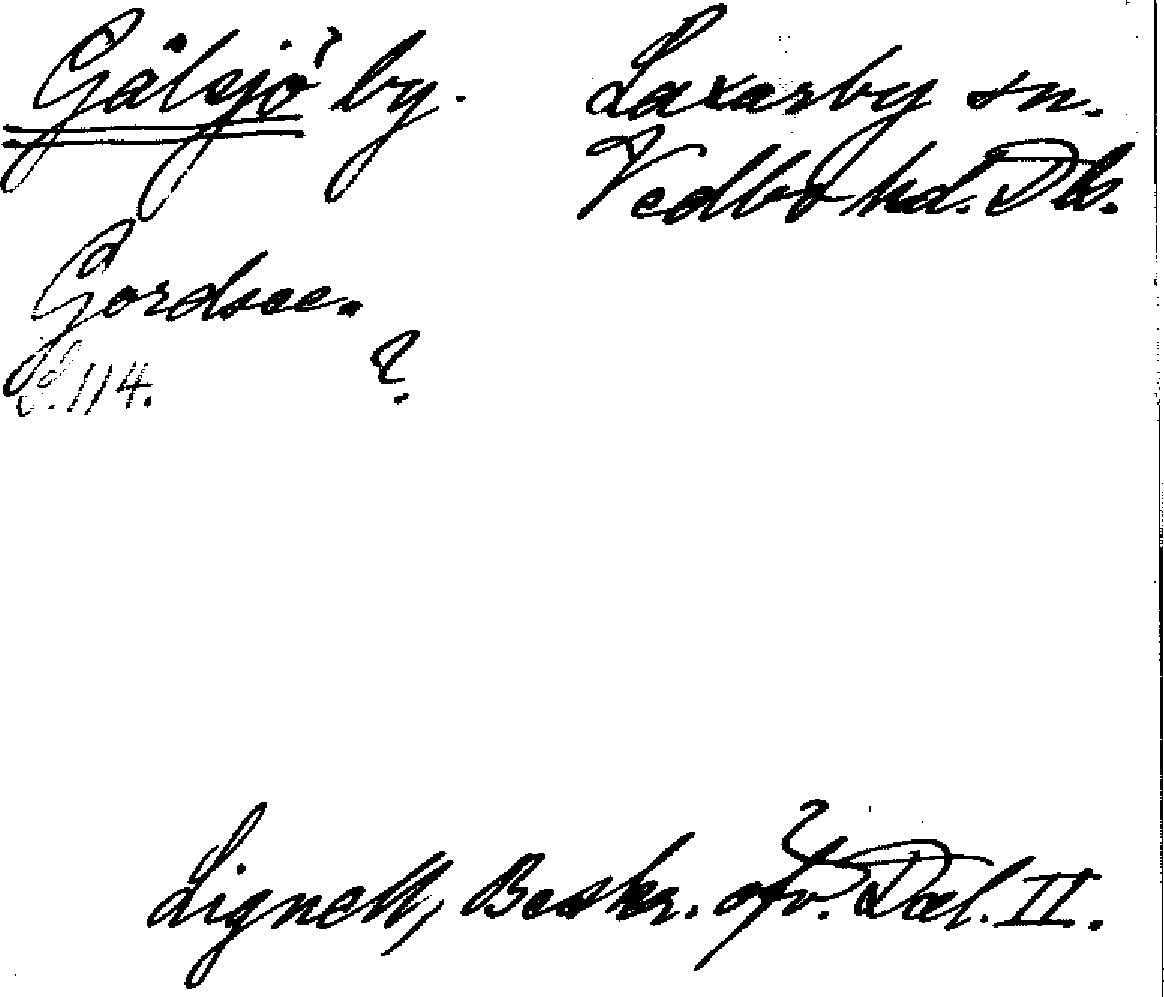 Gälsjö by.
Laxarby sn.
Vedbo hd. Dls.
Gordsee.
S. 114.
?
Lignell, Beskr. öfv. Dal. II.